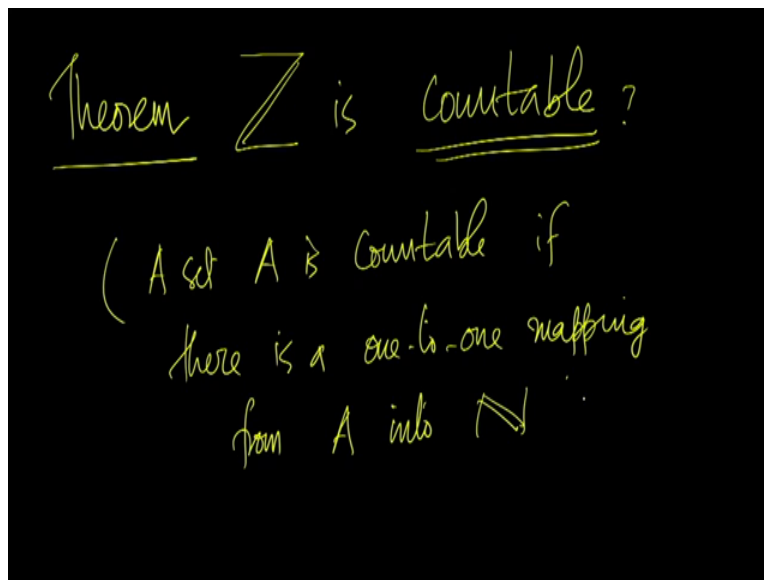 Theorem ℤ is Countable ?
( A set A is Countable if
there is a one-to-one mapping
from A into ℕ